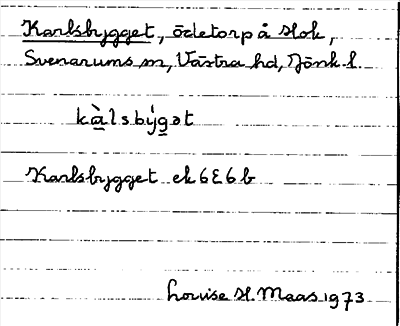 Karlsbygget, ödetorp å Slok,
Svenarums sn, Västra hd, Jönk. l.
kàlsbýgət
Karlsbygget ek 6E6b
Louise H. Maas 1973